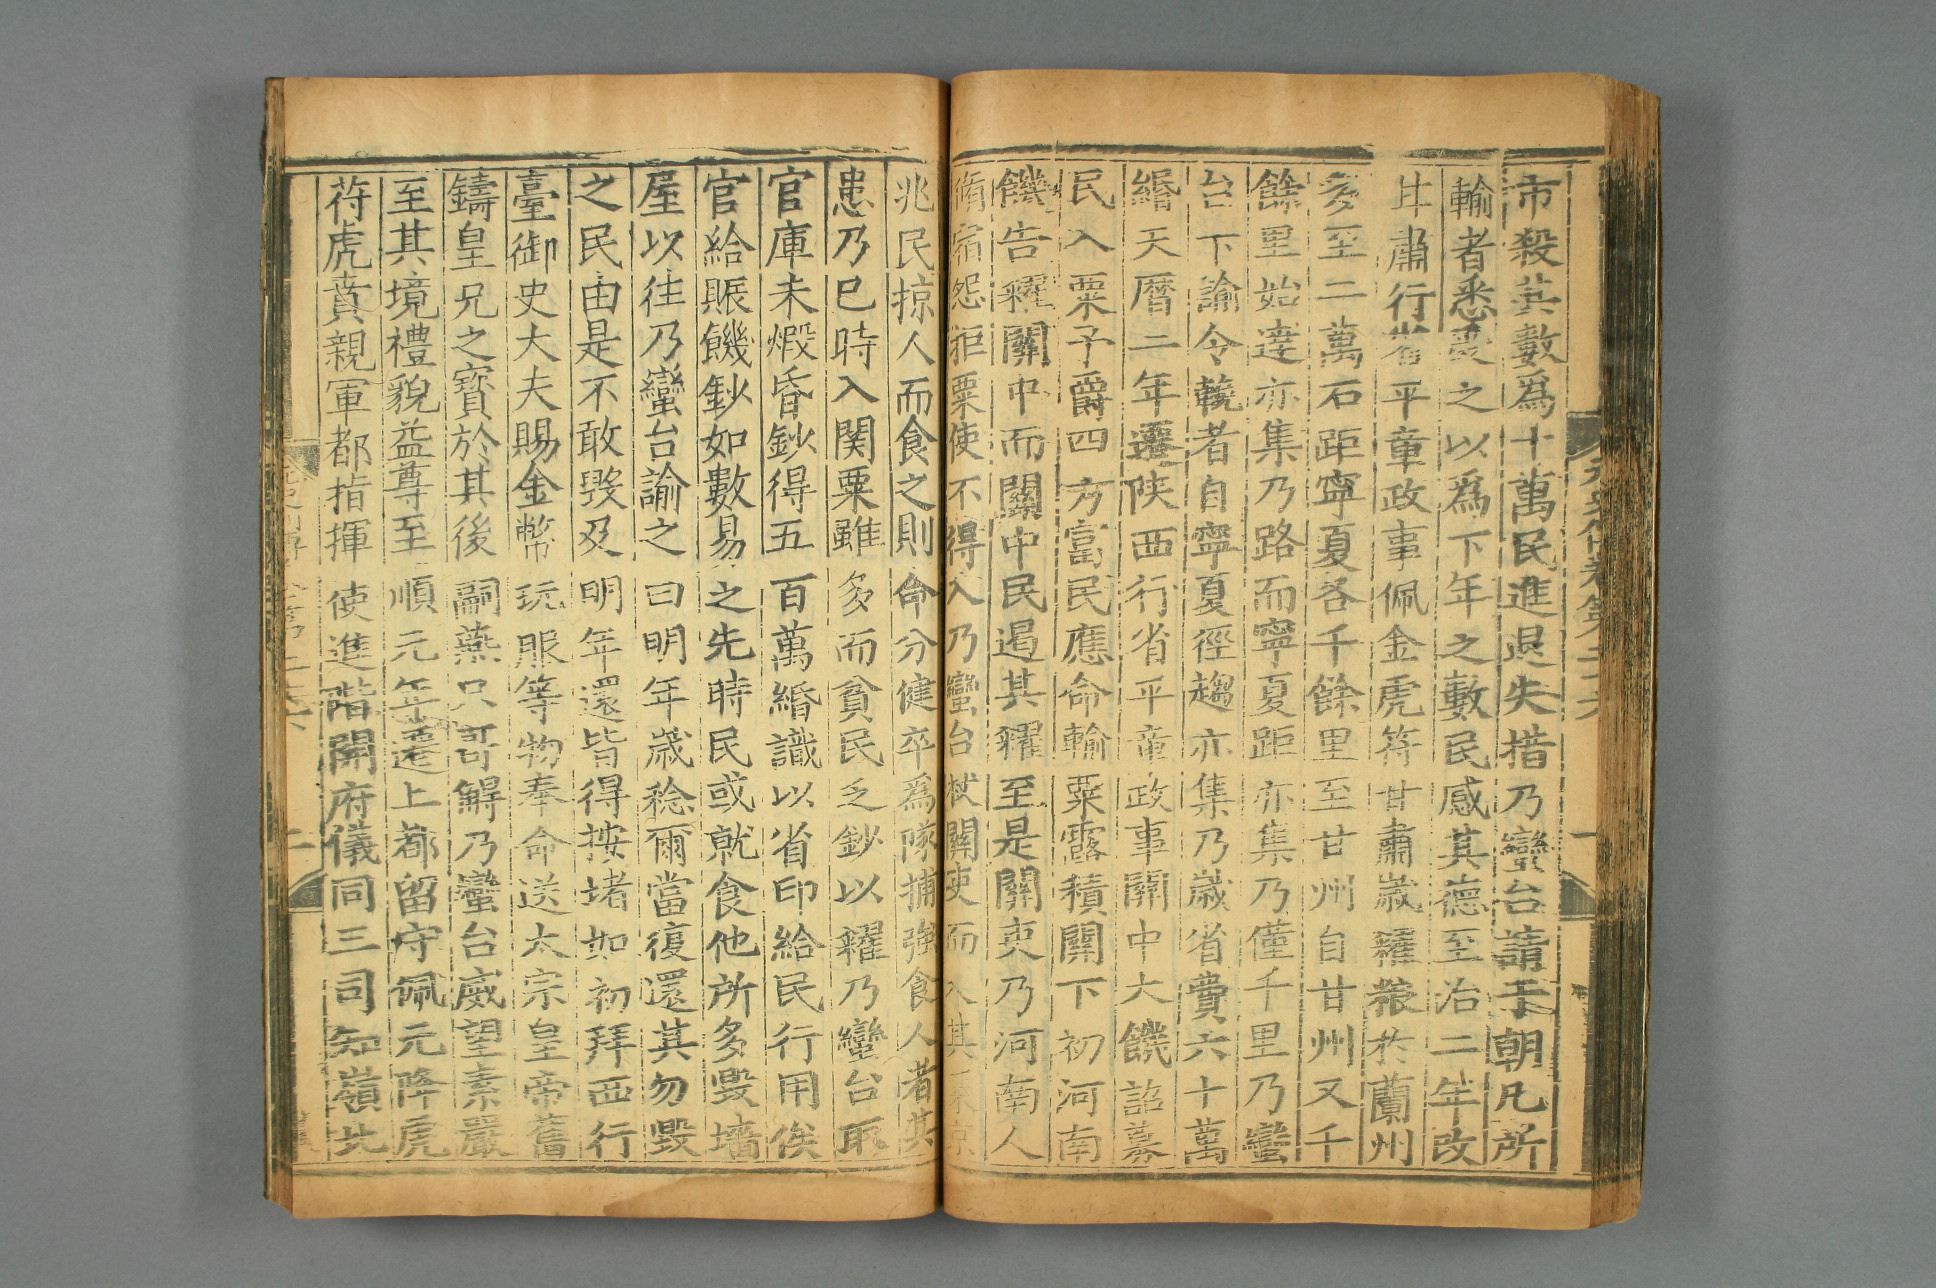 市殺其數爲十萬民進退失措乃蠻台請于朝凡所
輸者悉受之以爲下年之數民感其德至治二年改
甘肅行省平章政事佩金虎符甘肅歲糴粮於蘭州
多至二萬石距寧夏各千餘里至甘州自甘州又千
餘里始達亦集乃路而寧夏距亦集乃僅千里乃蠻
台下諭令輓者自寧夏徑趨亦集乃歲省費六十萬
緡天曆二年遷陜西行省平章政事關中大饑詔募
民入粟予爵四方富民應命輸粟露積關下初河南
饑告糴關中而關中民遏其糴至是關吏乃河南人
脩宿怨拒粟使不得入乃蠻台杖關吏而入其粟京
兆民掠人而食之則命分健卒爲隊捕強食人者其
患乃已時入関粟雖多而貧民乏鈔以糴乃蠻台取
官庫未煅昏鈔得五百萬緡識以省印給民行用俟
官給賑饑鈔如數易之先時民或就食他所多毀墻
屋以往乃蠻台諭之曰明年歲稔爾當復還其勿毀
之民由是不敢毀及明年還皆得按堵如初拜西行
臺御史大夫賜金幣玩服等物奉命送太宗皇帝舊
鑄皇兄之寶於其後嗣燕只哥䚟乃蠻台威望素嚴
至其境禮貌益尊至順元年遷上都留守佩元降虎
符虎賁親軍都指揮使進階開府儀同三司知嶺北